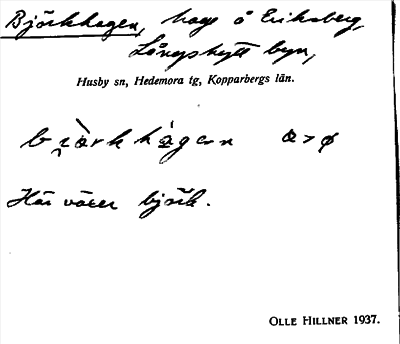 Björkhagen, hage å Eriksberg,
Långshytte byn,
Husby sn, Hedemora tg, Kopparbergs län.
Här växer björk.
OLLE HILLNER 1937.